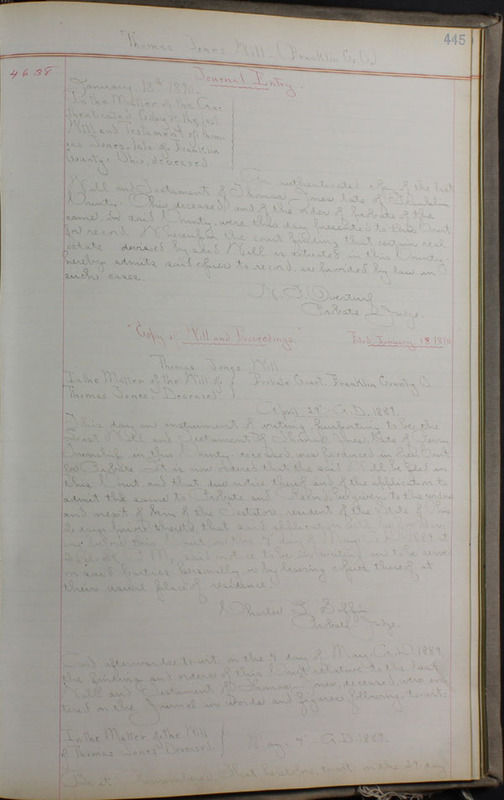 445
Thomas Jones Will. (Franklin Co. O.)
4638
Journal Entry.
January 18th 1890.
In the Matter of the
Authenticated Copy of the last
Will and Testament of
Jones, late of Franklin
County, Ohio, deceased
An authenticated copy of the last
Will and Testament of Thomas Jones late of Franklin
County Ohio deceased, and of the order of probate of the
same, in said County, were this day presented to this Court
for record. Whereupon the court finding that certain real
estate devised by said Will is situated in this County
hereby admits said copies to record, as provided by law in
such cases.
Probate Judge.
"Copy of Will and Proceedings." Filed January 18 1890
Thomas Jones Will
In the Matter of the Will of
Thomas Jones Deceased
Probate Court, Franklin County O.
April 29" A.D. 1889.
This day an instrument of writing, purporting to be the
Last Will and Testament of Thomas Jones late of
Township in this County deceased was produced in said Court
for Probate. It is now ordered that the said Will be filed in
this Court and that due notice thereof and of the application to
admit the same to Probate and Record be given to the widow
and next of kin of the Testator resident of the State of Ohio
days
day of May A.D. 1889 at
said notice to be in writing and to be served
on said parties personally or by leaving copies thereof at
their usual place of residence.
Charles G. Saffin
Probate Judge.
And afterwards to wit on the 4 day of May A.D. 1889
the findings and orders of this Court relative to the last
Will and Testament of Thomas Jones, deceased, were entered
on the Journal in words and figures following to wit:
In the Matter of the Will
of Thomas Jones Deceased
May 4" A.D. 1889.
Be it Remembered, That heretofore, to wit on the 29 day